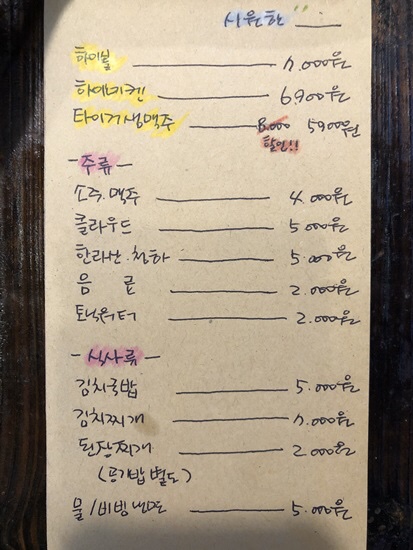 시원한
하이볼 7.000원
하이네켄 6900원
타이거생맥주 8.000 5900원
할인!!
- 주류 -
소주.맥주 4.000원
클라우드 5.000원
한라산.청하 5.000원
음료 2.000원
토닉워터 2.000원
- 식사류 -
김치국밥 5.000원
김치찌개 7.000원
된장찌개 2.000원
(공기밥 별도)
물/비빔냉면 5.000원